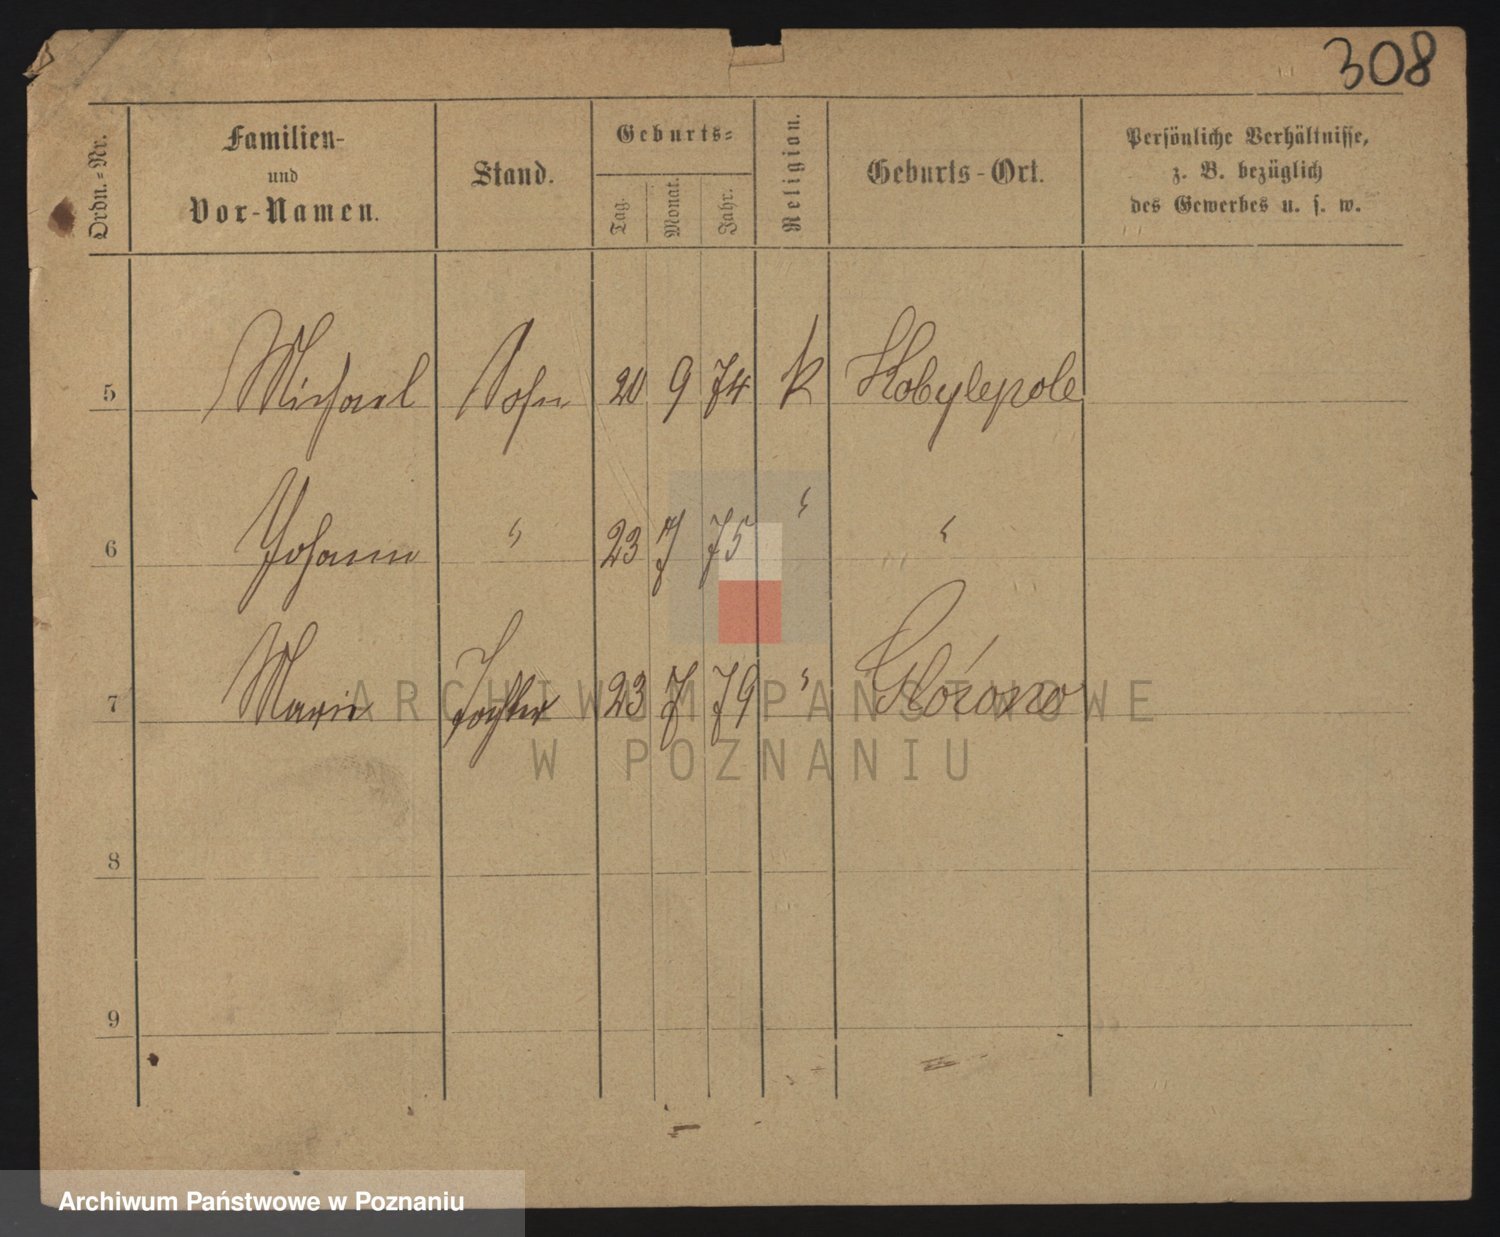 308
Ordn.-Nr.
Familien-
und
Vor-Namen.
Stand.
Geburts-
Tag.
Monat.
Jahr.
Religion.
Geburts-Ort.
Persönliche Verhältnisse,
z. B. bezüglich
des Gewerbes u. s. w.
5 Michael Sohn 20 9 74 k Kobylepole
6 Johann " 23 7 75 " "
7 Marie Tochter 23 7 79 "
8
9
ARCHIWUM PAŃSTWOWE
W POZNANIU
Archiwum Państwowe w Poznaniu